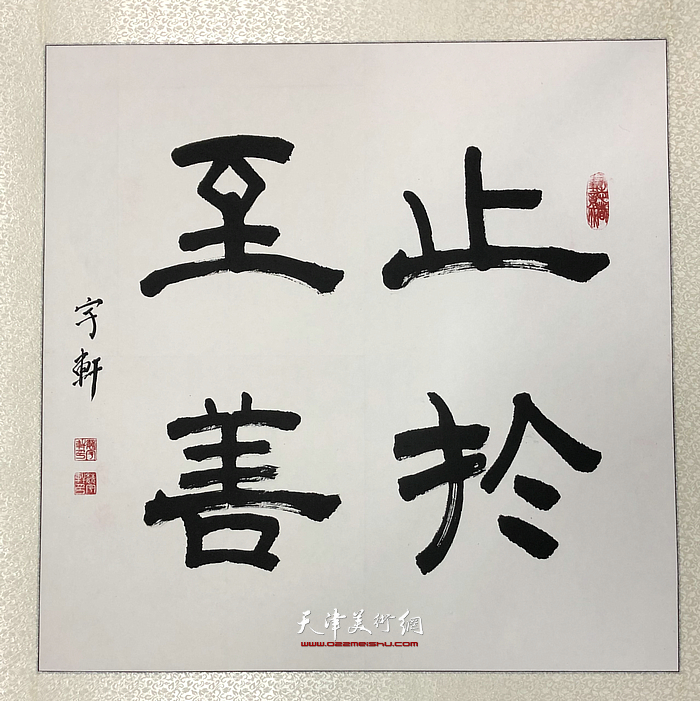 止於
至善
宇軒
天津美術網
www.022meishu.com